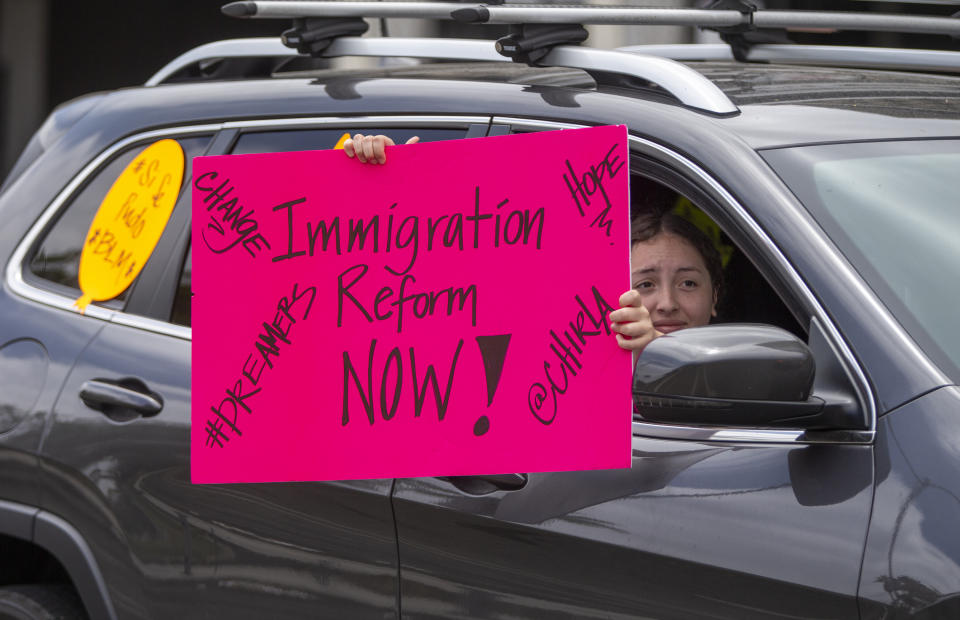 #Si Se
Pudo
#BLM#
CHANGE
HOPE
Immigration
Reform
NOW!
#DREAMERS
@CHIRLA